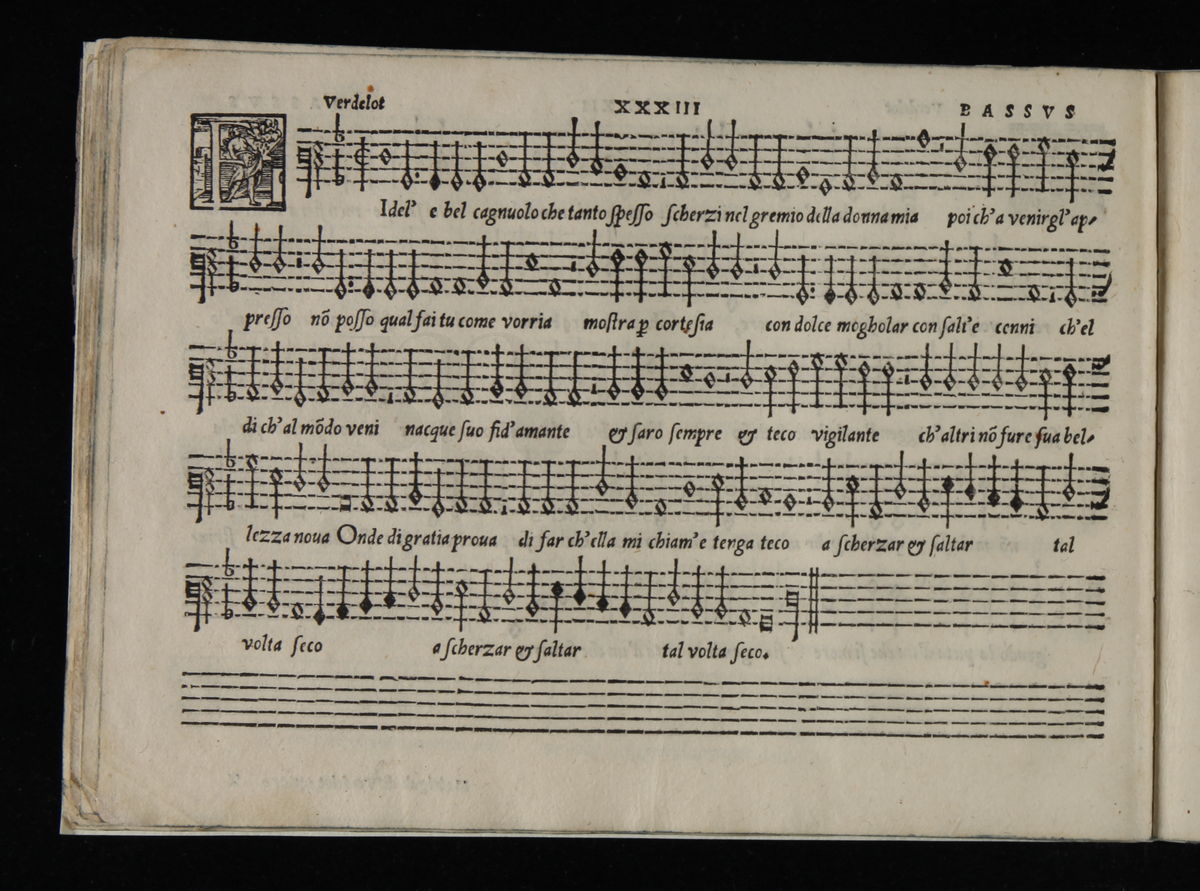 Verdelot XXXIII BASSVS
FIdel' e bel cagnuolo che tanto ſpeſſo ſcherzi nel gremio della donna mia poi ch'a venirgl'ap-
preſſo nō poſſo qual fai tu come vorria moſtra ꝑ corteſia con dolce mogholar con ſalt'e cenni ch'el
di ch'al mōdo veni nacque ſuo fid'amante & ſaro ſempre & teco vigilante ch'altri nō fure ſua bel-
lezza noua Onde di gratia proua di far ch'ella mi chiam'e tenga teco a ſcherzar & ſaltar tal
volta ſeco a ſcherzar & ſaltar tal volta ſeco.